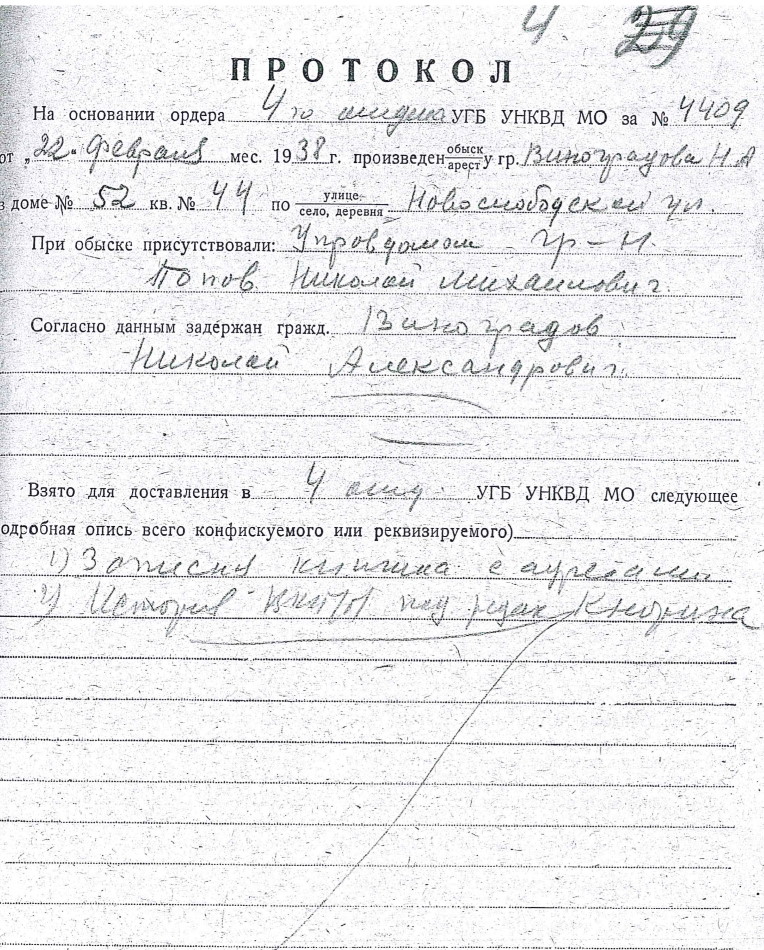 4 29
ПРОТОКОЛ
На основании ордера 4го отдела УГБ УНКВД МО за № 4409
от „22" февраля мес. 1938 г. произведен обыск арест у гр. Виноградова Н А
в доме № 52 кв. № 44 по улице: село, деревня Новослободской ул.
При обыске присутствовали: Управдомом гр-н.
Попов Николай Михаилович.
Согласно данным задержан гражд. Виноградов
Николай Александрович.
Взято для доставления в 4 отд. УГБ УНКВД МО следующее
одробная опись всего конфискуемого или реквизируемого)
1) Записная книжка с адресами
2) История ВКП/б под редак Кнорина